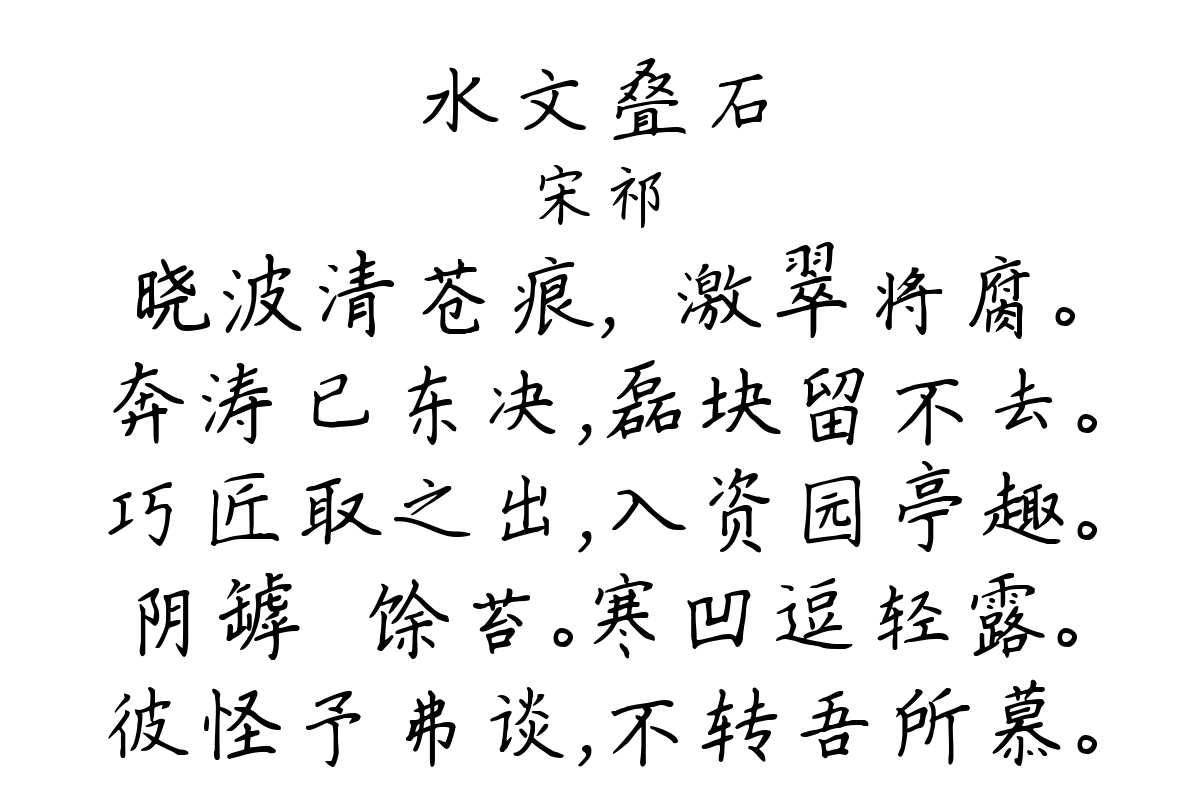 水文叠石
宋祁
晓波清苍痕,激翠将腐。
奔涛已东决,磊块留不去。
巧匠取之出,入资园亭趣。
阴罅 馀苔。寒凹逗轻露。
彼怪予弗谈,不转吾所慕。